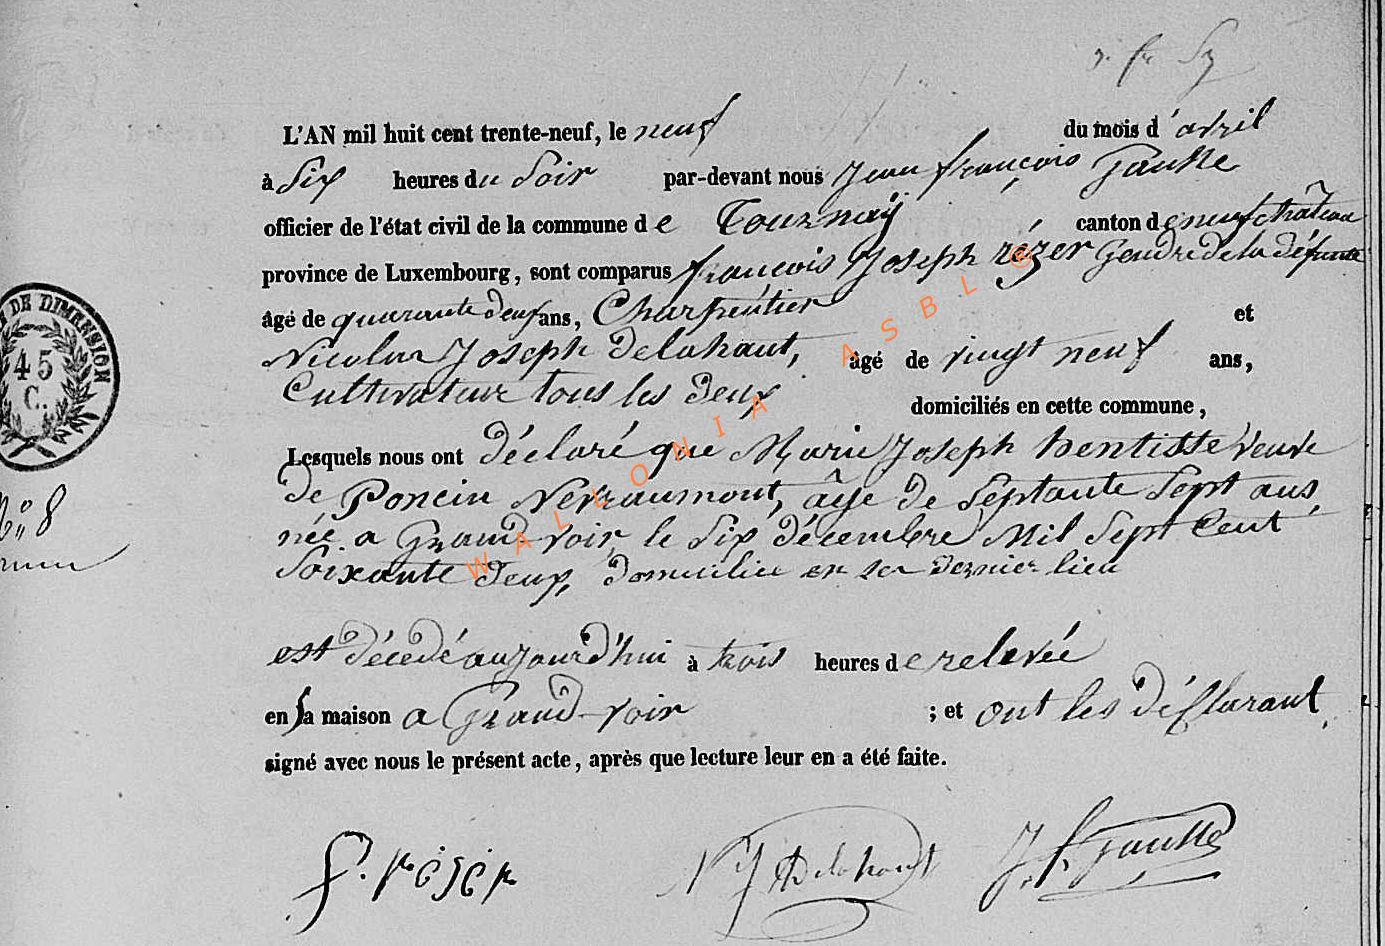 L'AN mil huit cent trente-neuf, le neuf du mois d'avril
à Six heures du Soir par-devant nous Jean françois Gauthe
officier de l'état civil de la commune de Tournaÿ canton de neufchâteau
province de Luxembourg, sont comparus françois Joseph rézer Gendre de la défunte
âgé de quarante deux ans, Charpentier et
Nicolas Joseph Delahaut, âgé de vingt neuf ans,
Cultivateur tous les deux domiciliés en cette commune,
Lesquels nous ont déclaré que Marie Joseph hentisse veuve
de Poncin Nevraumont, âge de Septante Sept ans
née a Grand-voir, le Six décembre Mil Sept Cent
Soixante deux, domiciliée en ser dernier lieu
est décedé aujourd'hui à trois heures de relevée
en sa maison a Grand-voir ; et ont les déclarant
signé avec nous le présent acte, après que lecture leur en a été faite.
f. réjér N J Delahaut J. f. Gauthe
DE DIMENSION
45
C.
No 8
WALLONIA ASBL ©